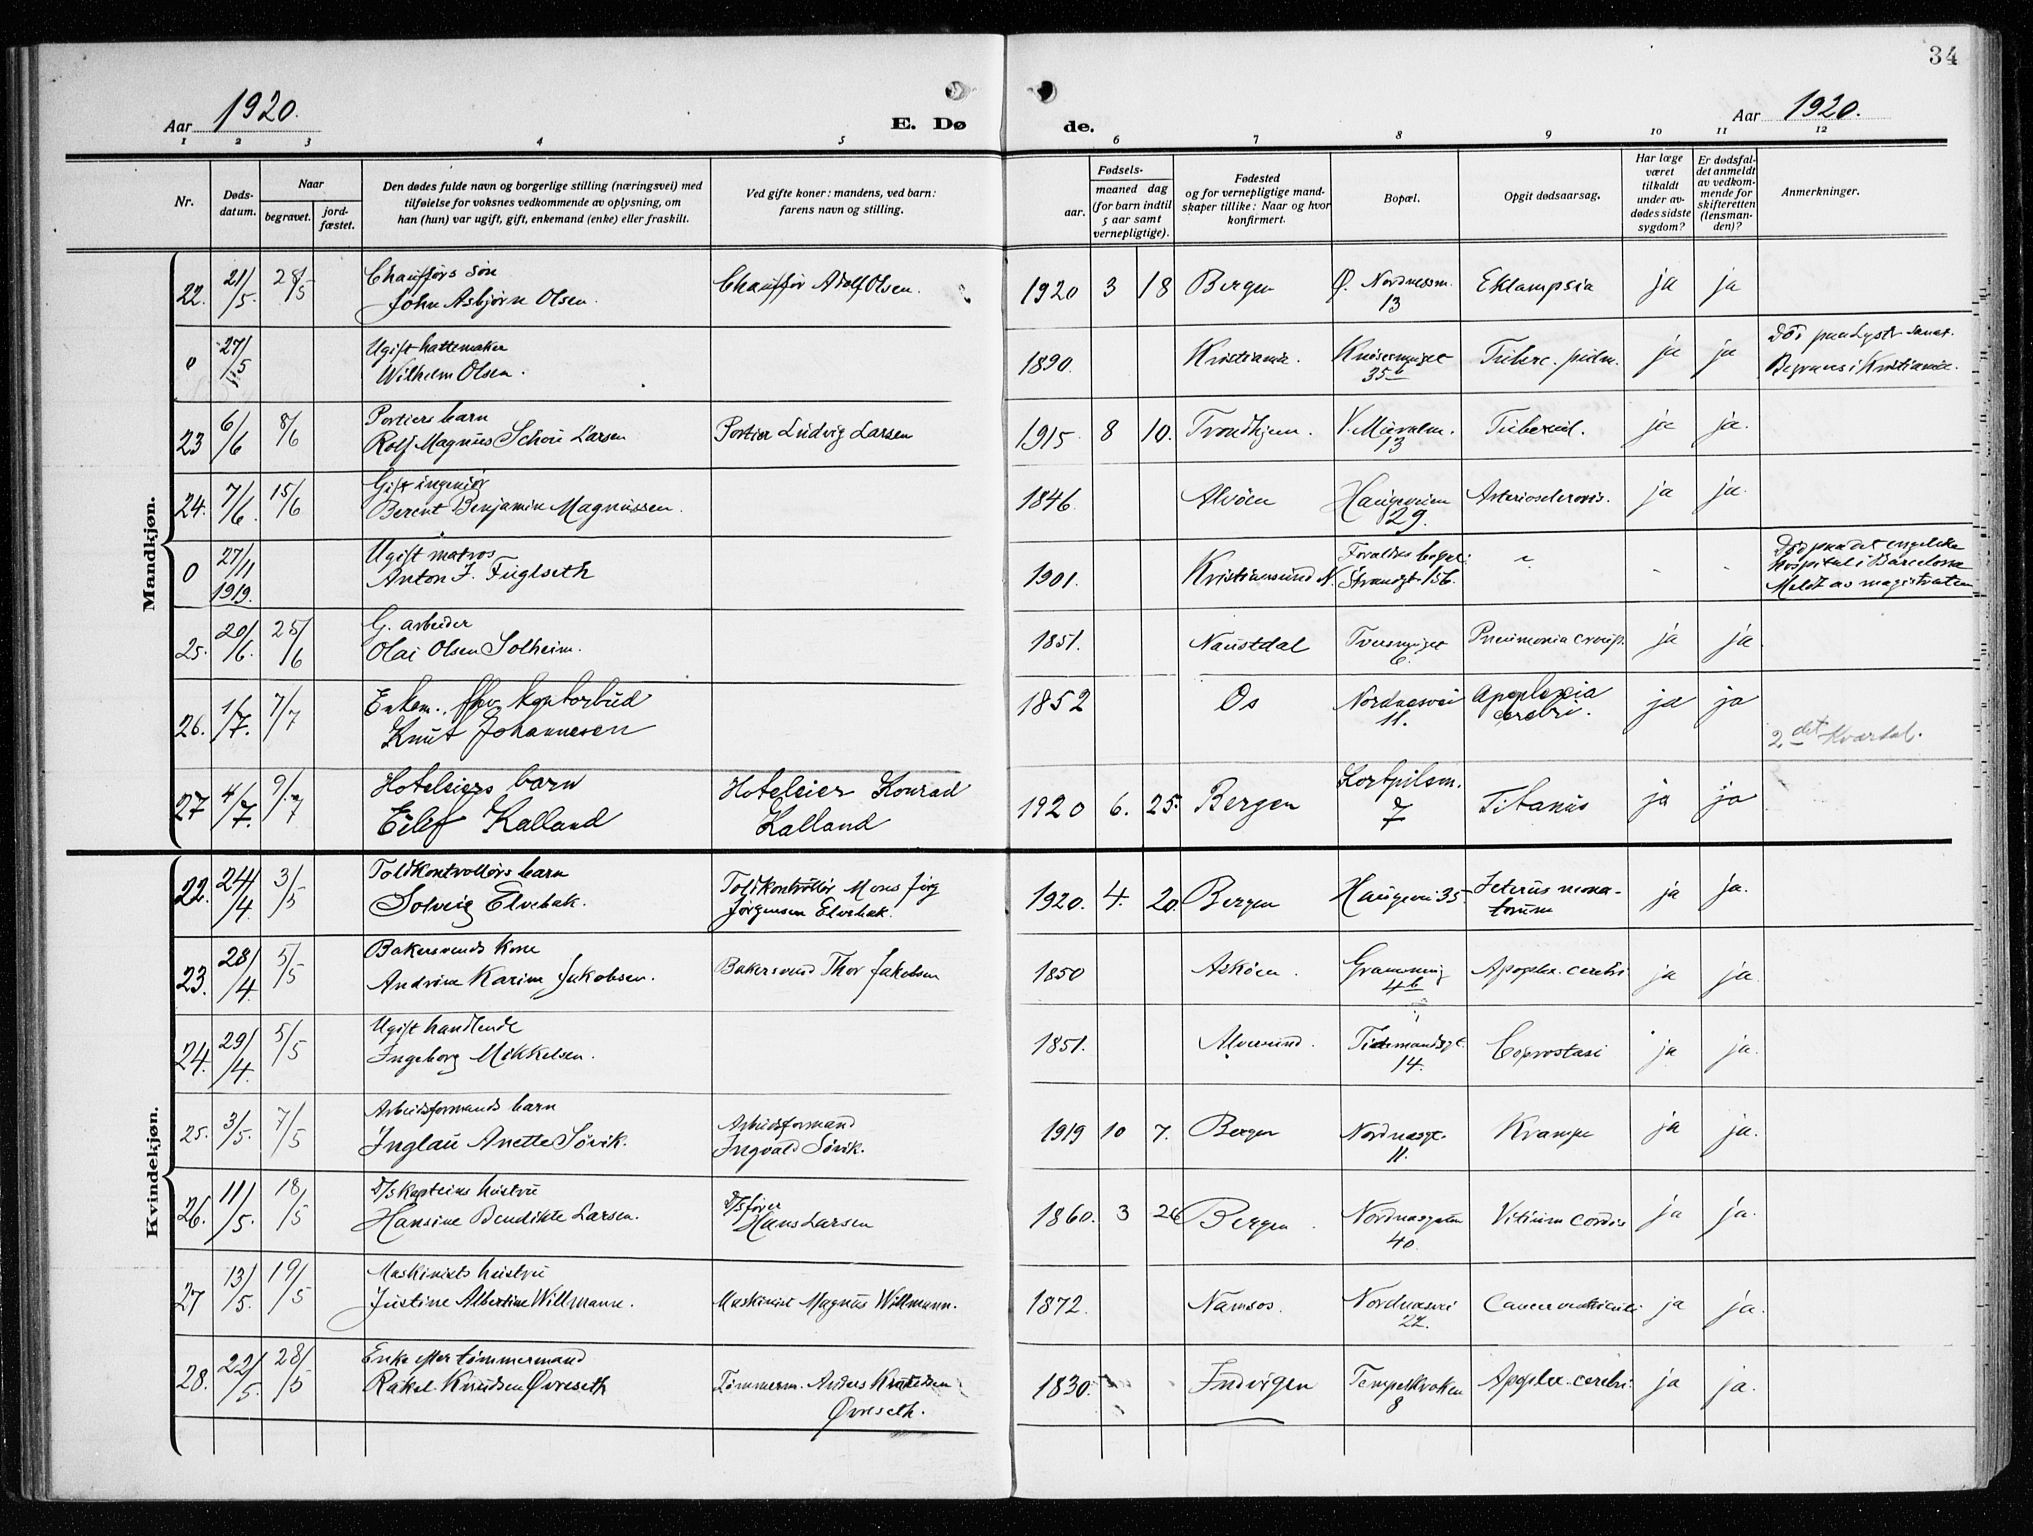 34
Aar 1920.
E. Dø de.
Aar 1920.
1 2 3 4 5 6 7 8 9 10 11 12
Nr.
Døds-
datum.
Naar
begravet.
jord-
fæstet.
Den dødes fulde navn og borgerlige stilling (næringsvei) med
tilføielse for voksnes vedkommende av oplysning, om
han (hun) var ugift, gift, enkemand (enke) eller fraskilt.
Ved gifte koner: mandens, ved barn:
farens navn og stilling.
Fødsels-
aar.
maaned dag
(for barn indtil
5 aar samt
vernepligtige).
Fødested
og for vernepligtige mand-
skaper tillike: Naar og hvor
konfirmert.
Bopæl.
Opgit dødsaarsag.
Har læge
været
tilkaldt
under av-
dødes sidste
sygdom?
Er dødsfal-
det anmeldt
av vedkom-
mende for
skifteretten
(lensman-
den)?
Anmerkninger.
Mandkjøn.
22. 21/5. 28/5 Chaufførs søn
John Asbjørn Olsen. Chauffør Adolf Olsen. 1920 3 18 Bergen Ø. Nordnessm.
13 Eklampsia ja ja
0 27/5 Ugift hattemaker
Wilhelm Olsen. 1890. Kristiania. 35b Tuberc. pulm. ja ja Død paa Lyst. sanat.
Begraves i Kristiania.
23 6/6 8/6 Portiers barn
Rolf Magnus Schou Larsen Portier Ludvig Larsen 1915. 8 10. Trondhjem. V. Muralm.
13 Tubercul. ja ja.
24. 7/6. 15/6 Gift ingeniør
Berent Benjamin Magnussen. 1846. Alvøen Haugeveien
29. Arteriosclerosis. ja ja.
0 27/11
1919. Ugift matros
Anton J. Fuglseth 1901. Kristiansund N. Forældres bopæl:
Strandgt 156. " - - Død paa det engelske
hospital i Barcelona
Meldt av magistraten
25. 20/6. 25/6 G. arbeider
Olai Olsen Solheim. 1851. Naustdal Tversmuget
6. Pneumonia croup. ja ja.
26. 1/7. 7/7 Enkem. fhv. kontorbud
Knut Johannesen 1852 Os Nordnesvei
11. Apoplexia
cerebri. ja ja
2det Kvartal.
27 4/7. 9/7 Hoteleiers barn
Eilef Kalland Hoteleier Konrad
Kalland 1920 6. 25. Bergen Lortpilsm.
7 Titanus ja ja
Kvindekjøn.
22. 24/4 3/5 Toldkontrollørs barn
Solveig Elvebak. Toldkontrollør Mons Jørg
Jørgensen Elvebak. 1920. 4. 20. Bergen Haugevei 35 Icterus neona-
torum ja ja.
23. 28/4. 5/5 Bakersvends kone
Andrine Karine Jakobsen. Bakersvend Thor Jakobsen 1850 Askøen. 4b Apoplex. cerebri ja ja.
24. 29/4. 5/5 Ugift handlende
Ingeborg Mikkelsen. 1851. Alversund. Tidemandsgt.
14. Coprostasi ja ja.
25. 3/5. 7/5 Arbeidsformands barn
Inglau Anette Søvik. Arbeidsformand
Ingvald Søvik. 1919 10 7. Bergen Nordnesgt.
11. Krampe ja ja.
26. 11/5. 18/5 D/s kapteins hustru
Hansine Bendikte Larsen. D/s fører
Hans Larsen 1860. 3 26 Bergen. Nordnesgaten
40. Vitium cordis ja ja.
27 13/5. 19/5 Maskinists hustru
Justine Albertine Willmann. Maskinist Magnus Willmann. 1872. Namsos. Nordnesvei
22. Cancer ventriculi ja ja.
28. 22/5. 28/5 Enke efter tømmermand
Rakel Knudsen Øvreseth Tømmerm. Anders Knudsen
Øvreseth. 1830. Indvigen Tempelkroken
8 Apoplex. cerebri. ja ja.